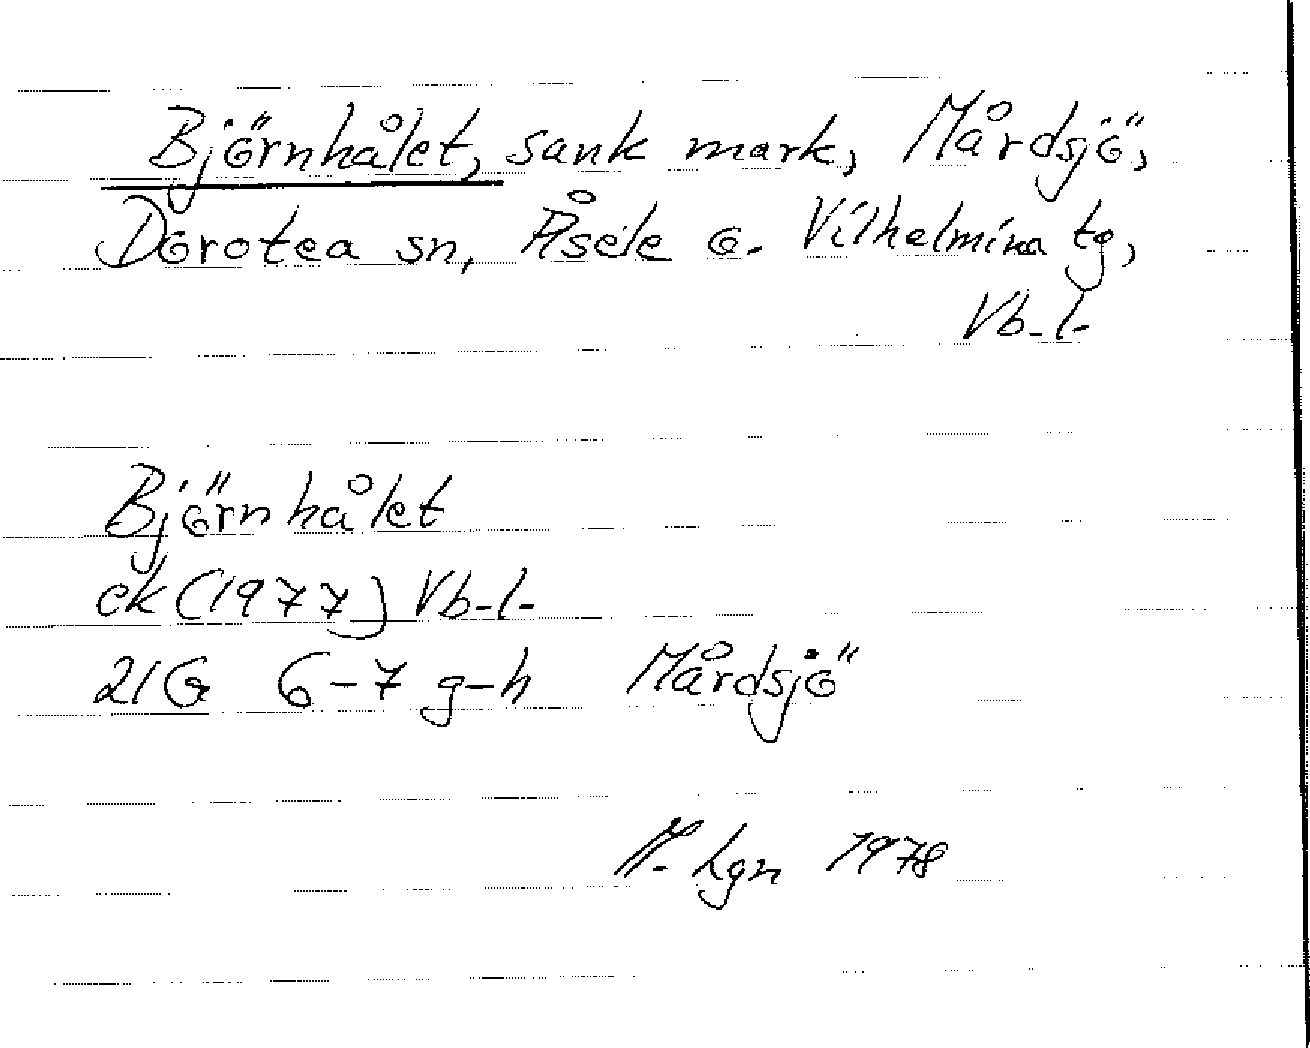 Björnhålet, sank mark, Mårdsjö,
Dorotea sn, Åsele o. Vilhelmina tg,
Vb-l-
Björnhålet
ek (1977) Vb-l-
21G 6-7 g-h Mårdsjö
M. Lgn 1978